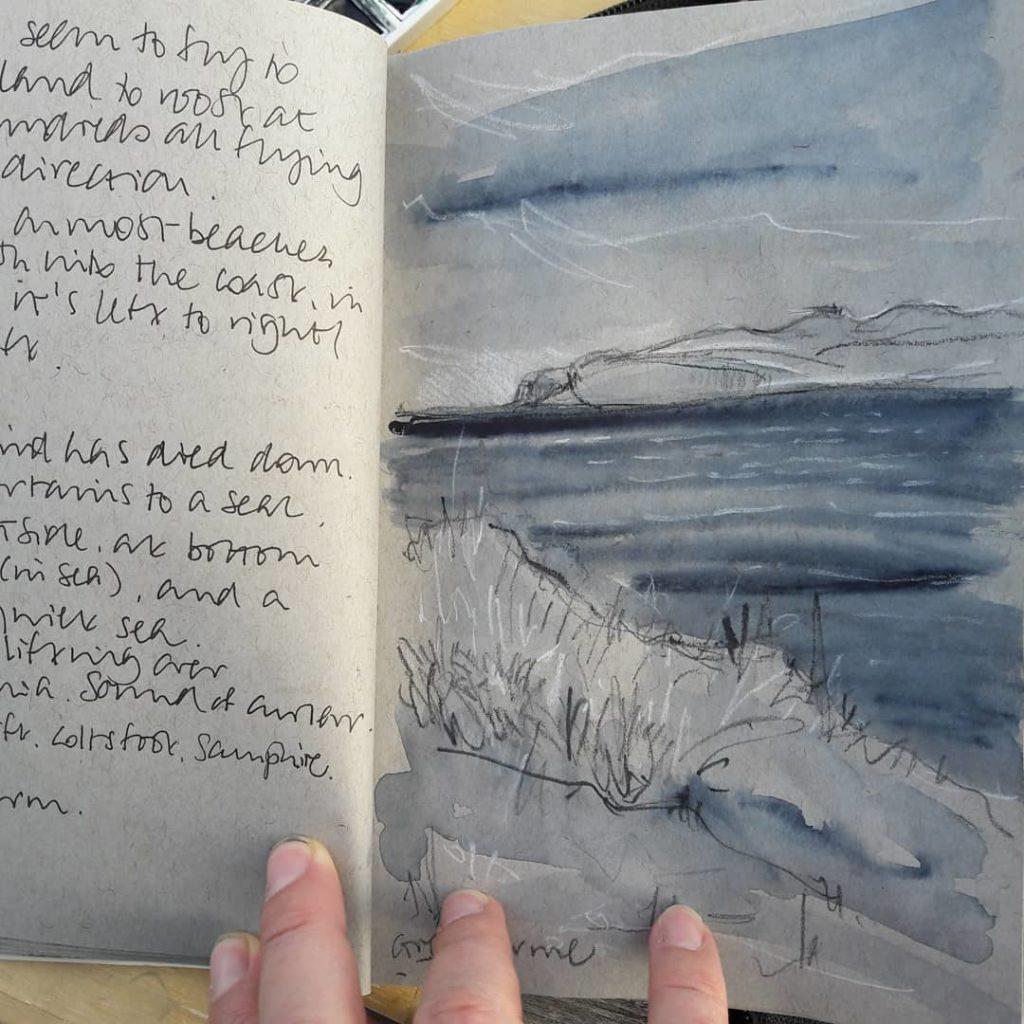 seem to try to
land to roost at
undreds all flying
direction.
almost-beaches
into the coast, in
it's left to right/
ind has died down.
to a seal
at bottom
(in sea), and a
milk sea.
lifting over
Sound of curlew.
coltsfoot, samphire.
rm.
rme